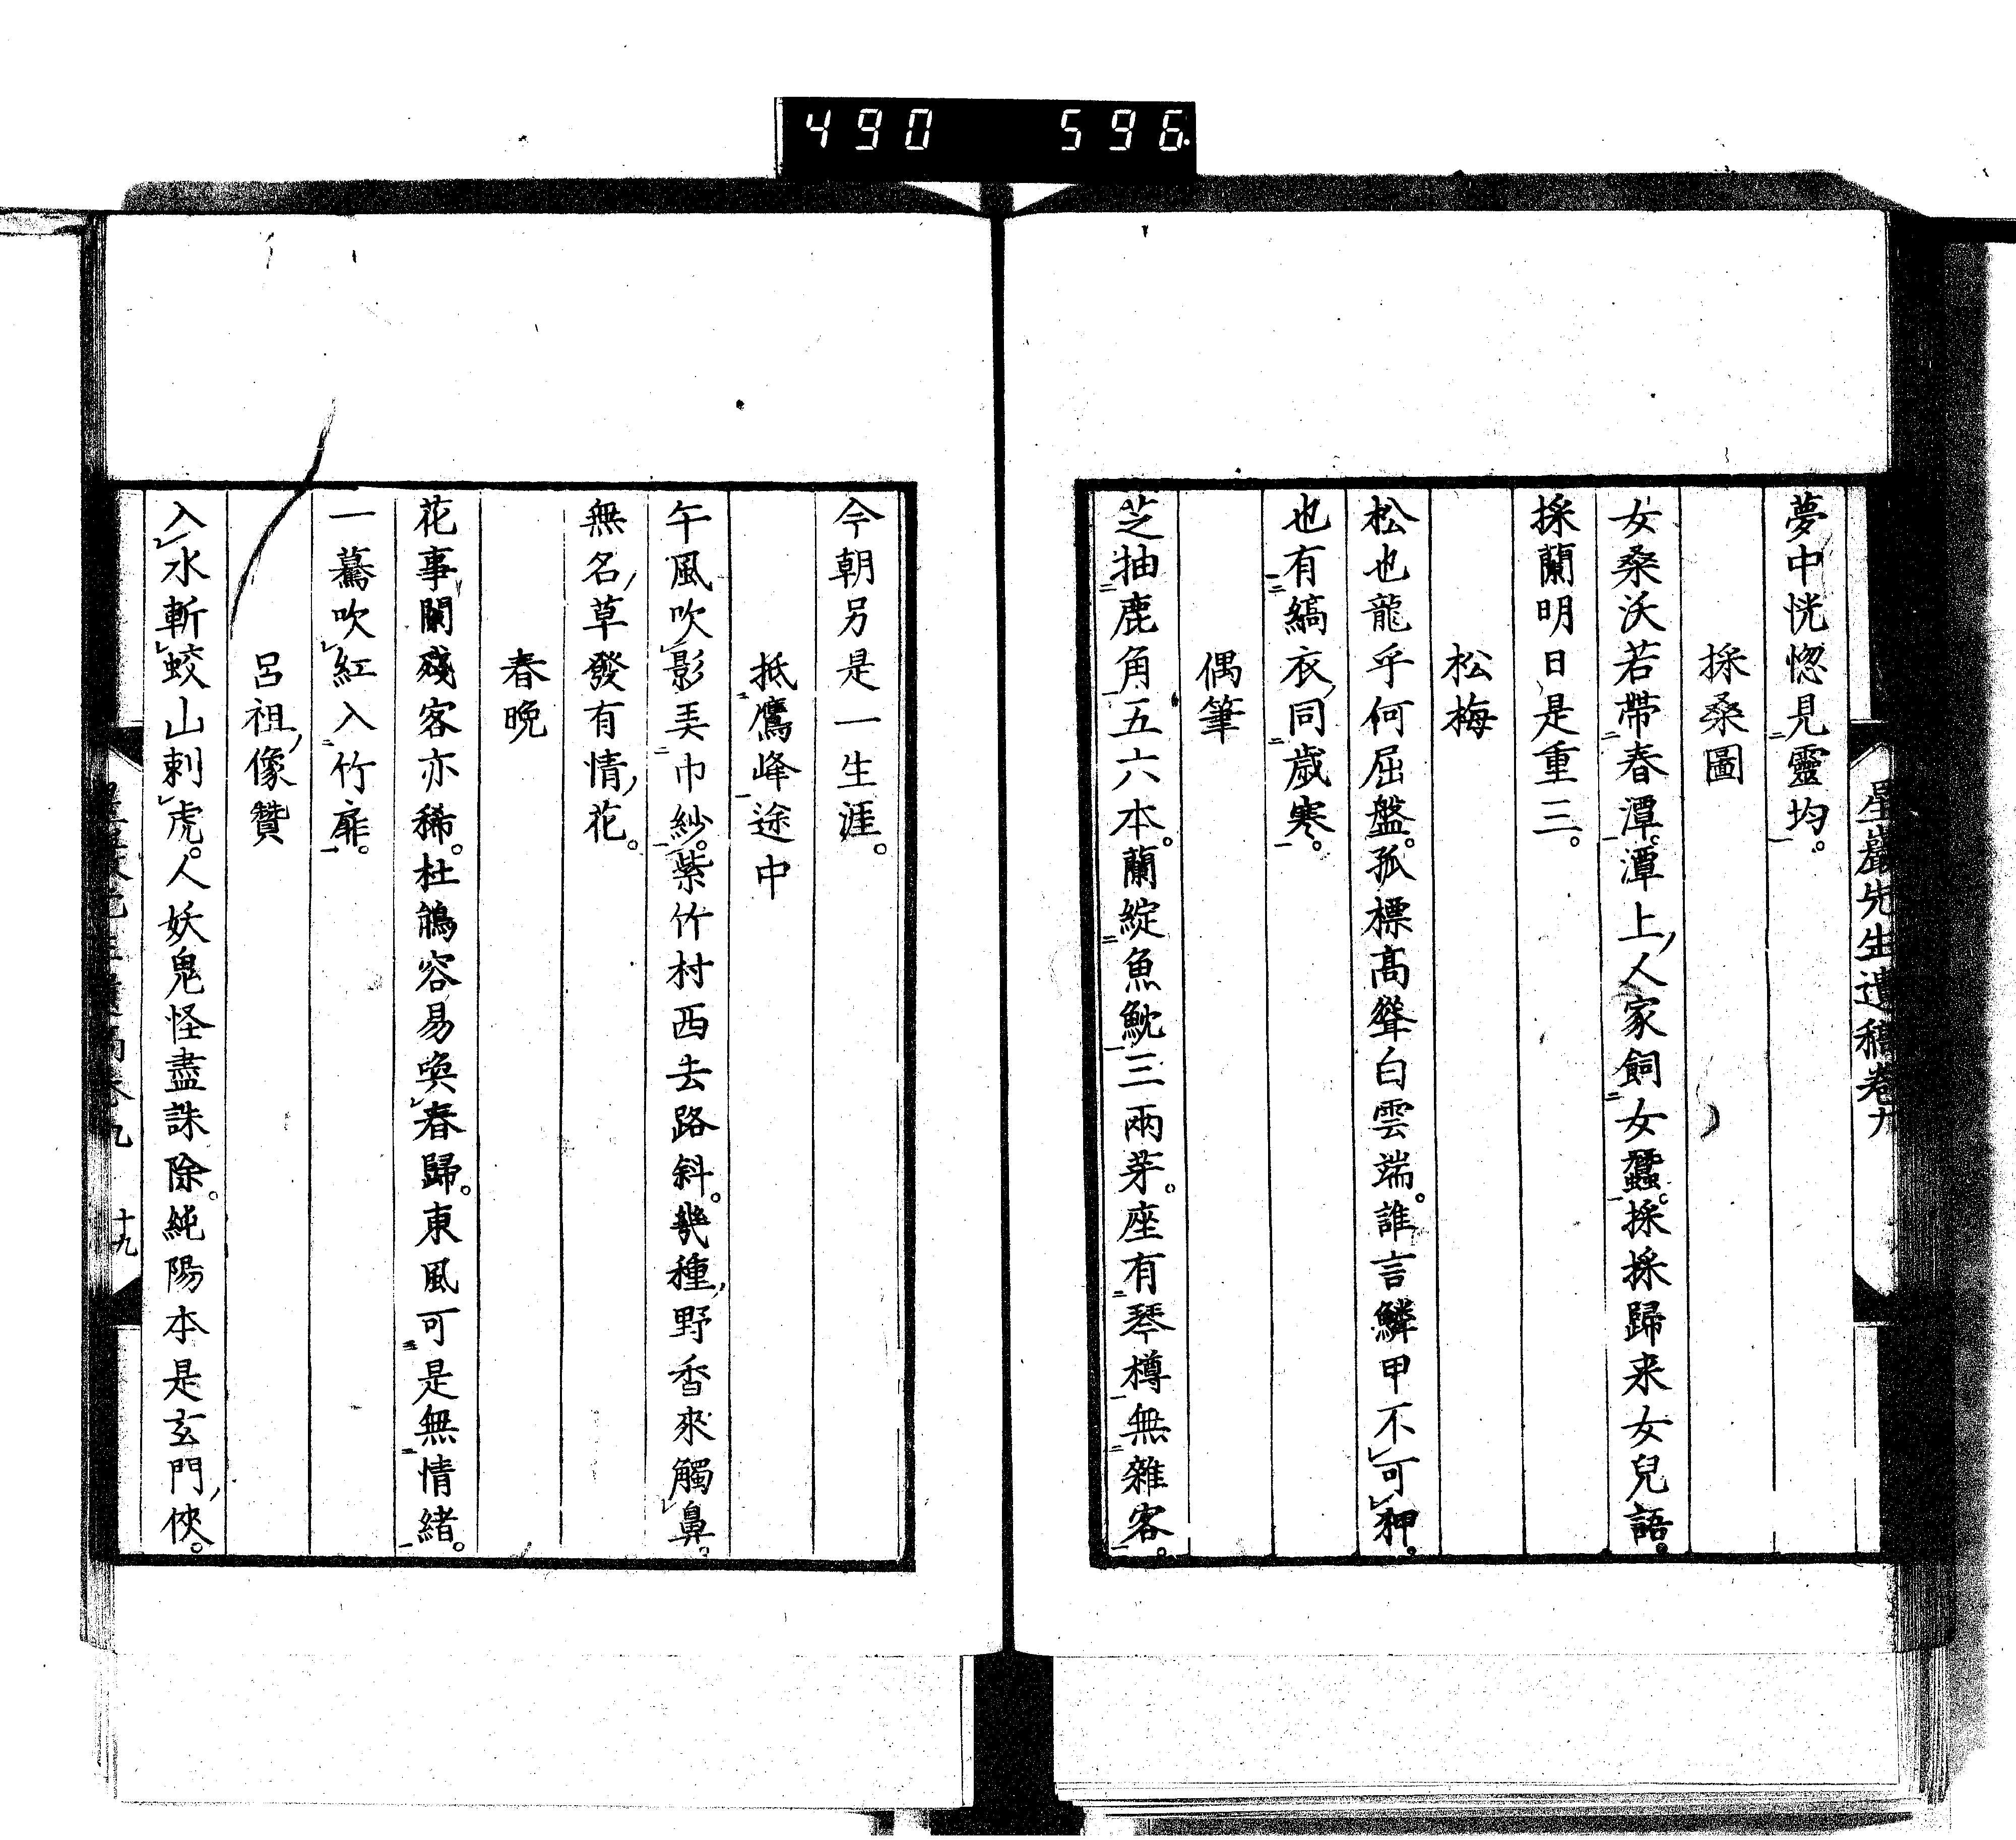 490 596
星巖先生遺稿卷九
夢中恍惚見靈均。
採桑圖
女桑沃若帶春潭。潭上人家飼女蠶。採採歸来女兒語。
採蘭明日是重三。
松梅
松也龍乎何屈盤。孤標高聳白雲端。誰言鱗甲不可狎。
也有縞衣同歲寒。
偶筆
芝抽鹿角五六本。蘭綻魚魫三兩芽。座有琴樽無雜客。
今朝另是一生涯。
抵鷹峰途中
午風吹影美巾紗。紫竹村西去路斜。幾種野香來觸鼻。
無名草發有情花。
春晚
花事闌殘客亦稀。杜鵑容易喚春歸。東風可是無情緒。
一驀吹紅入竹扉。
呂祖像贊
入水斬蛟山刺虎。人妖鬼怪盡誅除。純陽本是玄門俠。
十九